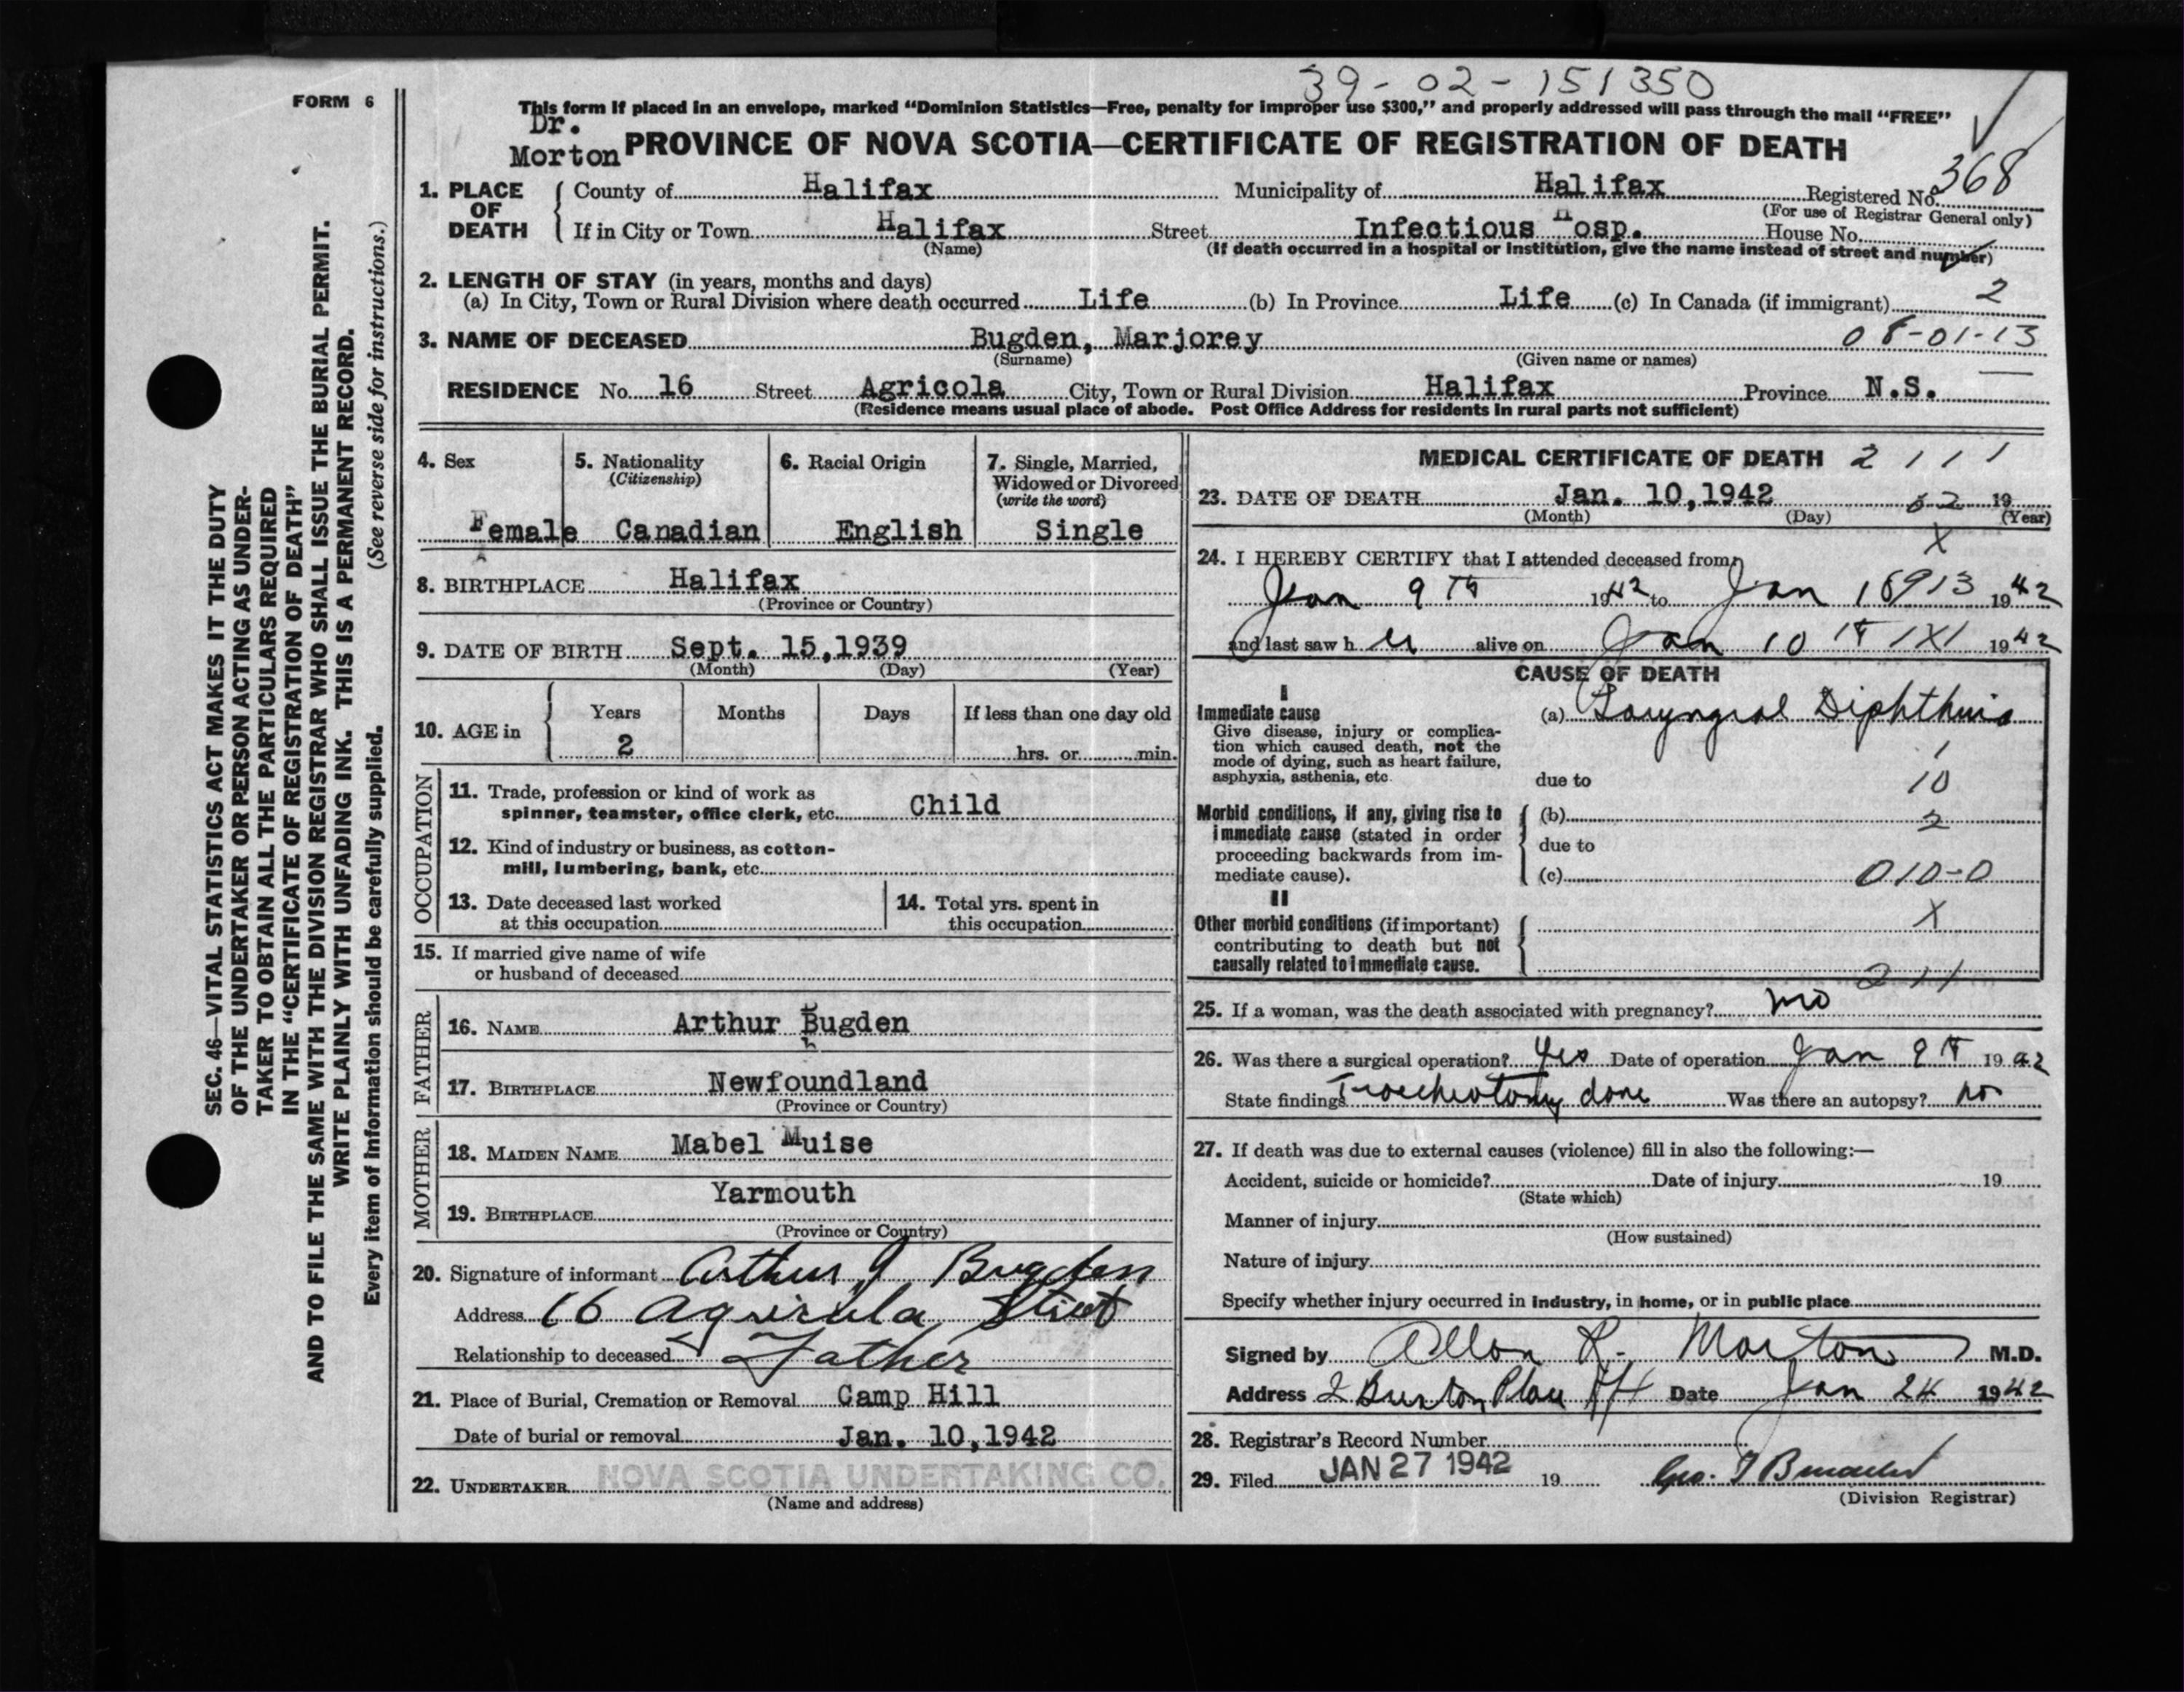 39-02-151350
FORM 6
This form if placed in an envelope, marked “Dominion Statistics—Free, penalty for improper use $300,” and properly addressed will pass through the mail “FREE”
Dr.
Morton
PROVINCE OF NOVA SCOTIA—CERTIFICATE OF REGISTRATION OF DEATH
368
1. PLACE OF DEATH
County of Halifax Municipality of Halifax Registered No.
(For use of Registrar General only)
If in City or Town Halifax Street Infectious Hosp. House No.
(Name) (If death occurred in a hospital or institution, give the name instead of street and number)
2. LENGTH OF STAY (in years, months and days)
(a) In City, Town or Rural Division where death occurred Life (b) In Province Life (c) In Canada (if immigrant) 2
3. NAME OF DECEASED Bugden, Marjorey 08-01-13
(Surname) (Given name or names)
RESIDENCE No. 16 Street Agricola City, Town or Rural Division Halifax Province N.S.
(Residence means usual place of abode. Post Office Address for residents in rural parts not sufficient)
4. Sex 5. Nationality 6. Racial Origin 7. Single, Married,
(Citizenship) Widowed or Divorced
(write the word)
Female Canadian English Single
8. BIRTHPLACE Halifax
(Province or Country)
9. DATE OF BIRTH Sept. 15,1939
(Month) (Day) (Year)
10. AGE in Years Months Days If less than one day old
2 hrs. or min.
OCCUPATION
11. Trade, profession or kind of work as
spinner, teamster, office clerk, etc. Child
12. Kind of industry or business, as cotton-
mill, lumbering, bank, etc.
13. Date deceased last worked 14. Total yrs. spent in
at this occupation this occupation
15. If married give name of wife
or husband of deceased
FATHER
16. NAME Arthur Bugden
17. BIRTHPLACE Newfoundland
(Province or Country)
MOTHER
18. MAIDEN NAME Mabel Muise
Yarmouth
19. BIRTHPLACE
(Province or Country)
20. Signature of informant Arthur J Bugden
Address 16 Agricola Street
Relationship to deceased Father
21. Place of Burial, Cremation or Removal Camp Hill
Date of burial or removal Jan. 10,1942
22. UNDERTAKER NOVA SCOTIA UNDERTAKING CO.
(Name and address)
MEDICAL CERTIFICATE OF DEATH 2 1 1 1
23. DATE OF DEATH Jan. 10,1942 19
(Month) (Day) (Year)
X
24. I HEREBY CERTIFY that I attended deceased from
Jan 9th 1942 to Jan 1942
and last saw her alive on Jan 10th 1942
CAUSE OF DEATH
I
Immediate cause (a) Laryngeal Diphtheria
Give disease, injury or complica-
tion which caused death, not the
mode of dying, such as heart failure,
asphyxia, asthenia, etc.
1
due to 10
Morbid conditions, if any, giving rise to (b) 2
immediate cause (stated in order due to
proceeding backwards from im-
mediate cause). (c) 010-0
II
Other morbid conditions (if important) X
contributing to death but not
causally related to immediate cause. 211
25. If a woman, was the death associated with pregnancy? no
26. Was there a surgical operation? Yes Date of operation Jan 9th 1942
State findings Tracheotomy done Was there an autopsy? no
27. If death was due to external causes (violence) fill in also the following:—
Accident, suicide or homicide? Date of injury 19
(State which)
Manner of injury
(How sustained)
Nature of injury
Specify whether injury occurred in industry, in home, or in public place
Signed by Allan R. Morton M.D.
Address 2 Place Date Jan 24 1942
28. Registrar's Record Number
29. Filed JAN 27 1942 19 Geo.
(Division Registrar)
SEC. 46—VITAL STATISTICS ACT MAKES IT THE DUTY
OF THE UNDERTAKER OR PERSON ACTING AS UNDER-
TAKER TO OBTAIN ALL THE PARTICULARS REQUIRED
IN THE “CERTIFICATE OF REGISTRATION OF DEATH”
AND TO FILE THE SAME WITH THE DIVISION REGISTRAR WHO SHALL ISSUE THE BURIAL PERMIT.
WRITE PLAINLY WITH UNFADING INK. THIS IS A PERMANENT RECORD.
Every item of information should be carefully supplied. (See reverse side for instructions.)